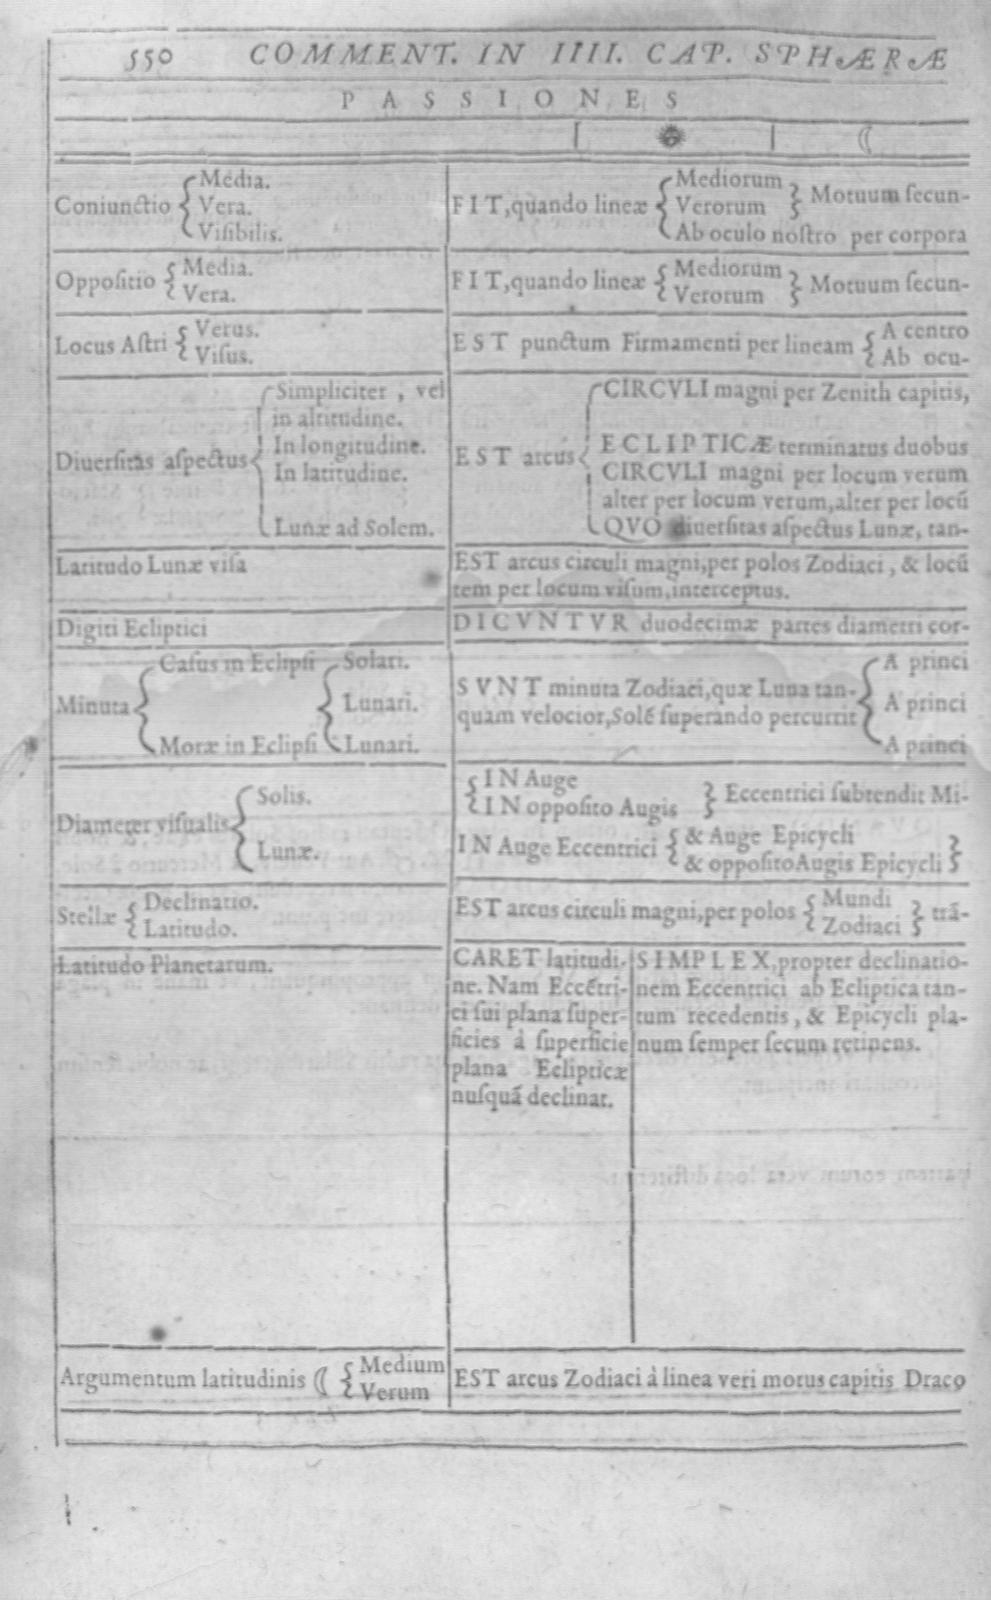 550 COMMENT. IN IIII. CAP. SPHÆRÆ
PASSIONES
☉ ☾
Coniunctio { Media. Vera. Visibilis.
FIT, quando lineæ { Mediorum Verorum } Motuum secun-
Ab oculo nostro per corpora
Oppositio { Media. Vera.
FIT, quando lineæ { Mediorum Verorum } Motuum secun-
Locus Astri { Verus. Visus.
EST punctum Firmamenti per lineam { A centro Ab ocu-
Diuersitas aspectus {
Simpliciter, vel
in altitudine.
In longitudine.
In latitudine.
Lunæ ad Solem.
EST arcus {
CIRCVLI magni per Zenith capitis,
ECLIPTICÆ terminatus duobus
CIRCVLI magni per locum verum
alter per locum verum, alter per locū
QVO diuersitas aspectus Lunæ, tan-
Latitudo Lunæ visa
EST arcus circuli magni, per polos Zodiaci, & locū
tem per locum visum, interceptus.
Digiti Ecliptici
DICVNTVR duodecimæ partes diametri cor-
Minuta { Casus in Eclipsi { Solari.
Lunari.
Moræ in Eclipsi { Lunari.
SVNT minuta Zodiaci, quæ Luna tan-
quam velocior, Solē superando percurrit {
A princi
A princi
A princi
Diameter visualis { Solis. Lunæ.
{ IN Auge
IN opposito Augis } Eccentrici subtendit Mi-
IN Auge Eccentrici { & Auge Epicycli
& opposito Augis Epicycli }
Stellæ { Declinatio. Latitudo.
EST arcus circuli magni, per polos { Mundi Zodiaci } trā-
Latitudo Planetarum.
CARET latitudi-
ne. Nam Eccētri-
ci sui plana super-
ficies à superficie
plana Eclipticæ
nusquā declinat.
SIMPLEX, propter declinatio-
nem Eccentrici ab Ecliptica tan-
tum recedentis, & Epicycli pla-
num semper secum retinens.
Argumentum latitudinis ☾ { Medium Verum
EST arcus Zodiaci à linea veri motus capitis Draco